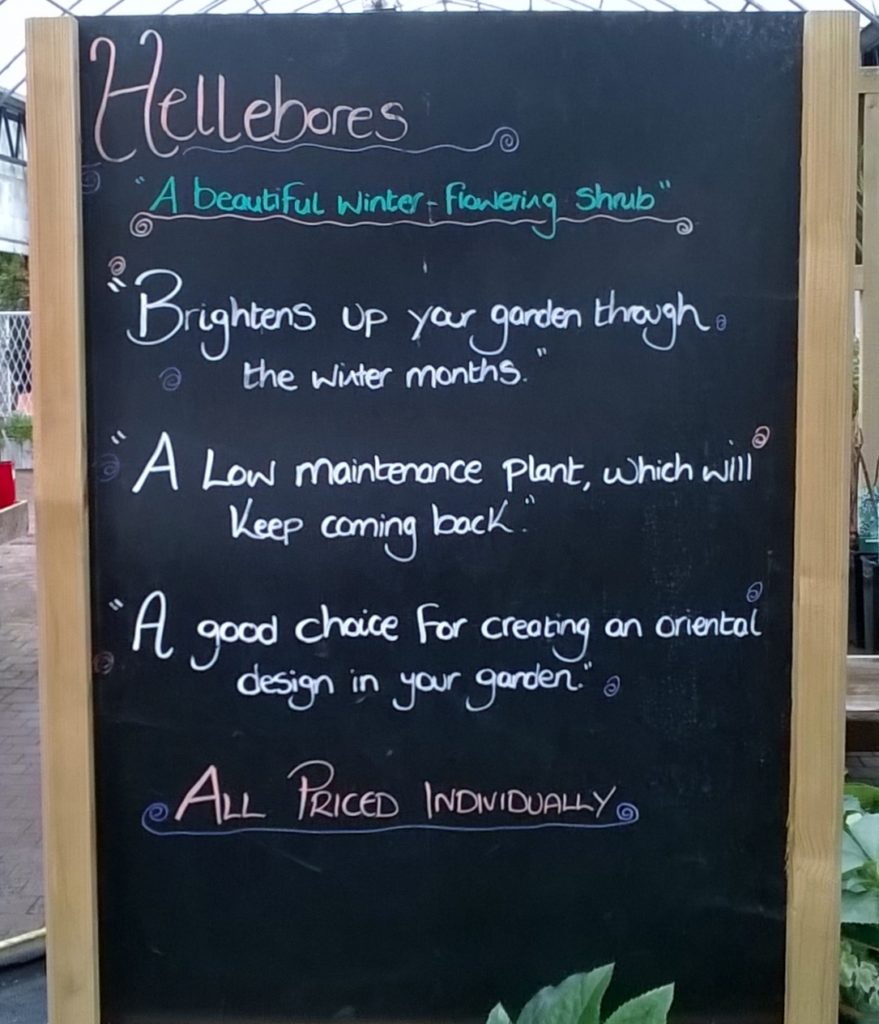 Hellebores
"A beautiful winter-flowering shrub"
"Brightens up your garden through
the winter months."
"A Low maintenance plant, which will
keep coming back."
"A good choice for creating an oriental
design in your garden."
ALL PRICED INDIVIDUALLY